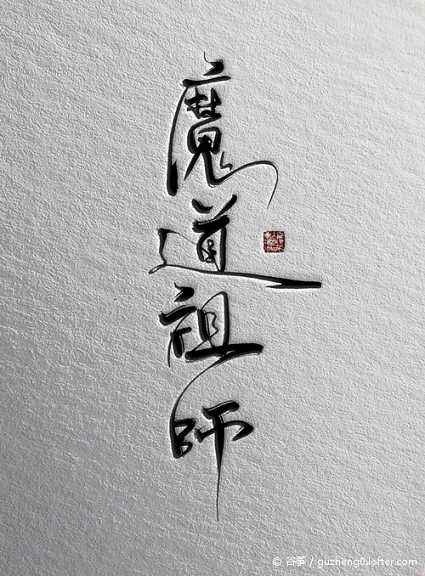 魔道祖師
© 谷筝 / guzheng0lofter.com